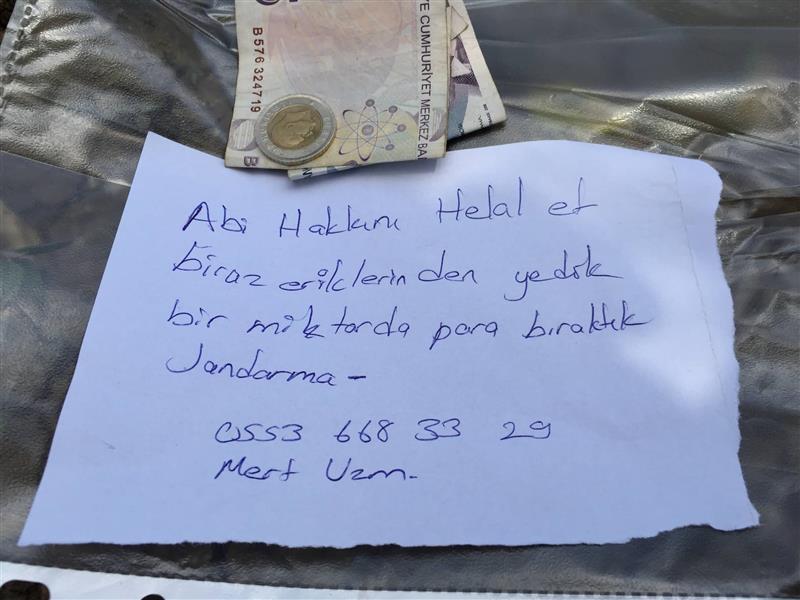 B576 324719
YE CUMHURİYET MERKEZ BA
Abi Hakkını Helal et
biraz eriklerinden yedik
bir miktarda para bıraktık
Jandarma-
0553 668 33 29
Mert Uzm.